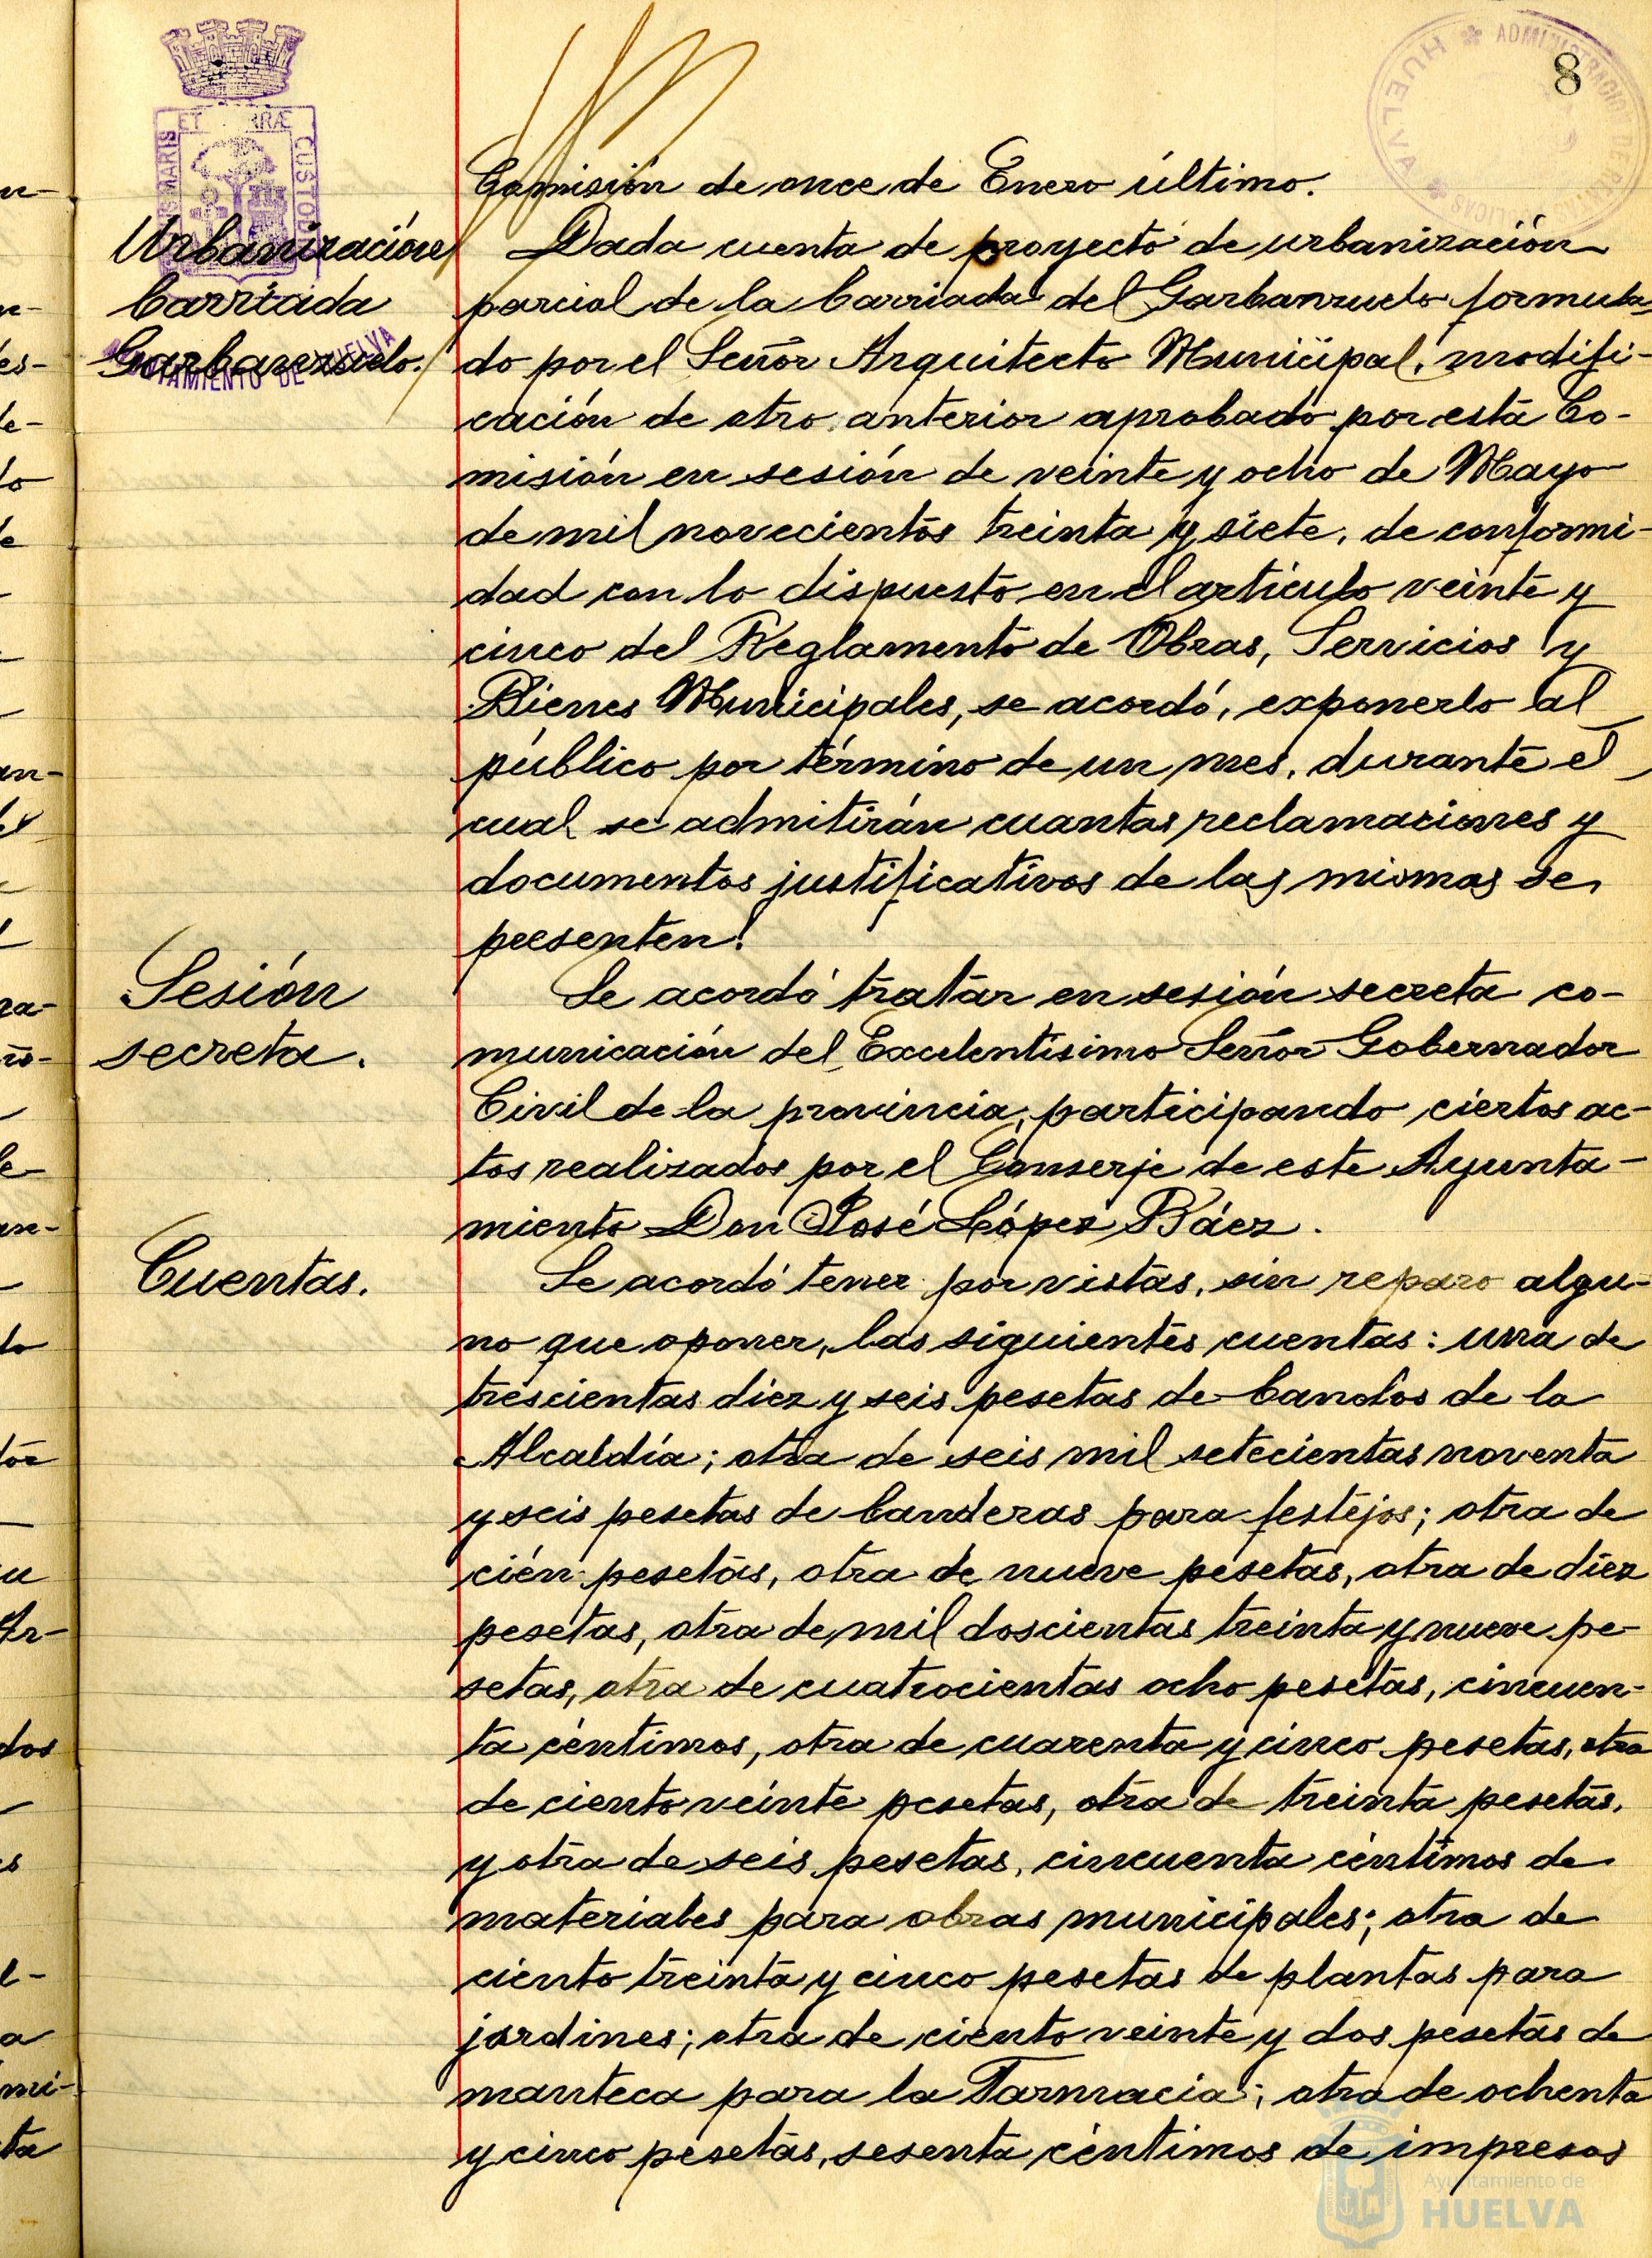 8
Comisión de once de Enero último.
Urbanización
barriada
Garbanzuelo.
Dada cuenta de proyecto de urbanización
parcial de la barriada del Garbanzuelo formula-
do por el Señor Arquitecto Municipal, modifi-
cación de otro anterior aprobado por esta Co-
misión en sesión de veinte y ocho de Mayo
de mil novecientos treinta y siete, de conformi-
dad con lo dispuesto en el artículo veinte y
cinco del Reglamento de Obras, Servicios y
Bienes Municipales, se acordó, exponerlo al
público por término de un mes, durante el
cual se admitirán cuantas reclamaciones y
documentos justificativos de las mismas se
presenten.
Sesión
secreta.
Se acordó tratar en sesión secreta co-
municación del Excelentísimo Señor Gobernador
Civil de la provincia, participando ciertos ac-
tos realizados por el Conserje de este Ayunta-
miento Don José López Báez.
Cuentas.
Se acordó tener por vistas, sin reparo algu-
no que oponer, las siguientes cuentas: una de
trescientas diez y seis pesetas de bandos de la
Alcaldía; otra de seis mil setecientas noventa
y seis pesetas de banderas para festejos; otra de
cién pesetas, otra de nueve pesetas, otra de diez
pesetas, otra de mil doscientas treinta y nueve pe-
setas, otra de cuatrocientas ocho pesetas, cincuen-
ta céntimos, otra de cuarenta y cinco pesetas, otra
de ciento veinte pesetas, otra de treinta pesetas,
y otra de seis pesetas, cincuenta céntimos de
materiales para obras municipales; otra de
ciento treinta y cinco pesetas de plantas para
jardines; otra de ciento veinte y dos pesetas de
manteca para la Farmacia; otra de ochenta
y cinco pesetas, sesenta céntimos de impresos
Ayuntamiento de
HUELVA